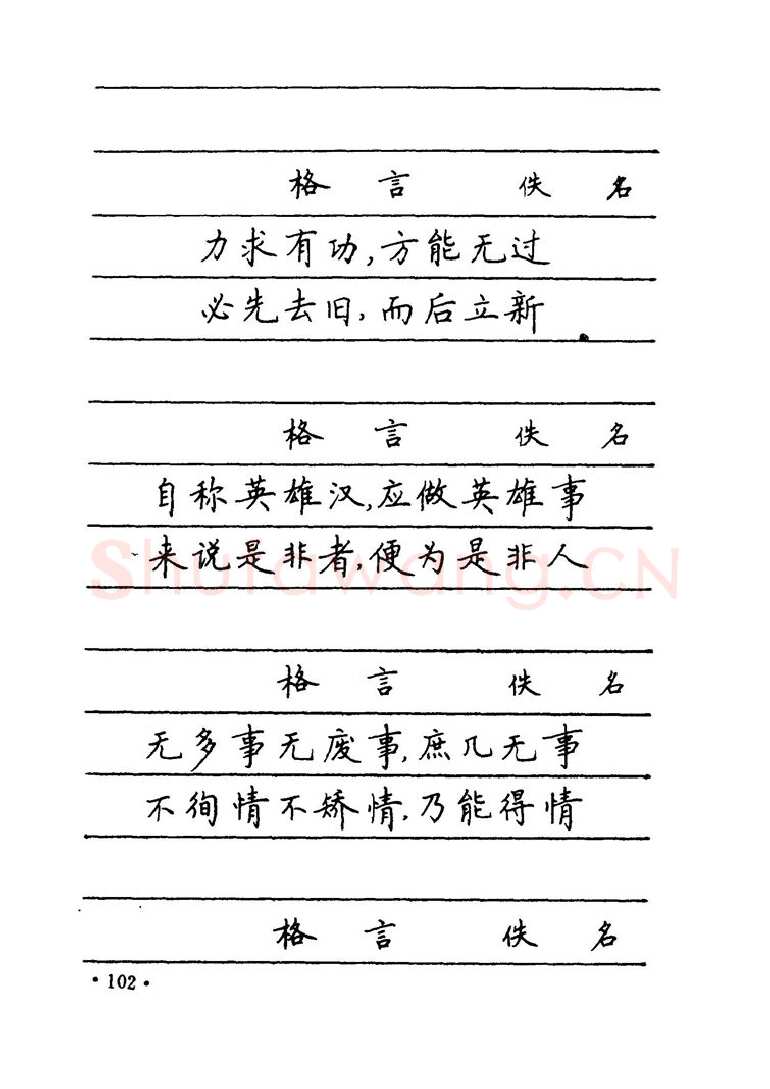 格言 佚名
力求有功,方能无过
必先去旧,而后立新
格言 佚名
自称英雄汉,应做英雄事
来说是非者,便为是非人
shufawang.CN
格言 佚名
无多事无废事,庶几无事
不徇情不矫情,乃能得情
格言 佚名
·102·